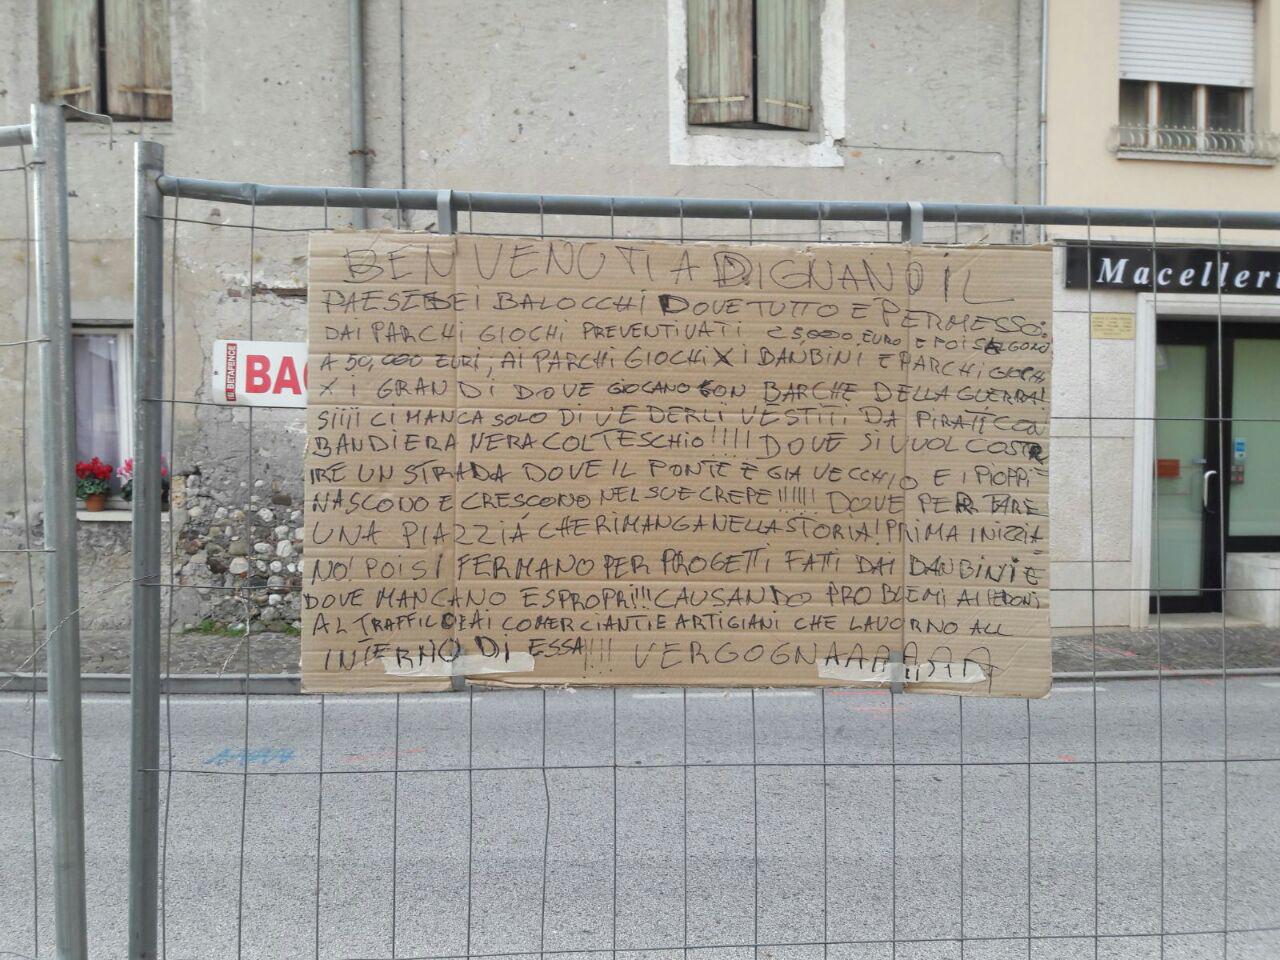 BENVENUTI A DIGNANO IL
PAESE DEI BALOCCHI DOVE TUTTO E PERMESSO:
DAI PARCHI GIOCHI PREVENTIVATI 25,000 EURO E POI SALGONO
A 50,000 EURI, AI PARCHI GIOCHI X I BANBINI E PARCHI GIOCHI
X I GRANDI DOVE GIOCANO CON BARCHE DELLA GUERRA!
SIIII CI MANCA SOLO DI VEDERLI VESTITI DA PIRATI CON
BANDIERA NERA COL TESCHIO!!!!! DOVE SI VUOL COSTR
IRE UN STRADA DOVE IL PONTE E GIA VECCHIO E I PIOPPI
NASCONO E CRESCONO NEL SUE CREPE!!!!!! DOVE PER FARE
UNA PIAZZIA CHE RIMANGA NELLA STORIA! PRIMA INIZZIA-
NO! POI SI FERMANO PER PROGETTI FATTI DAI BANBINI E
DOVE MANCANO ESPROPRI!!! CAUSANDO PROBLEMI AI PEDONI
AL TRAFFICO E AI COMERCIANTI E ARTIGIANI CHE LAVORNO ALL
INTERNO DI ESSA!!!! VERGOGNAAAAAAA
BETAFENCE
BA
Macelleri